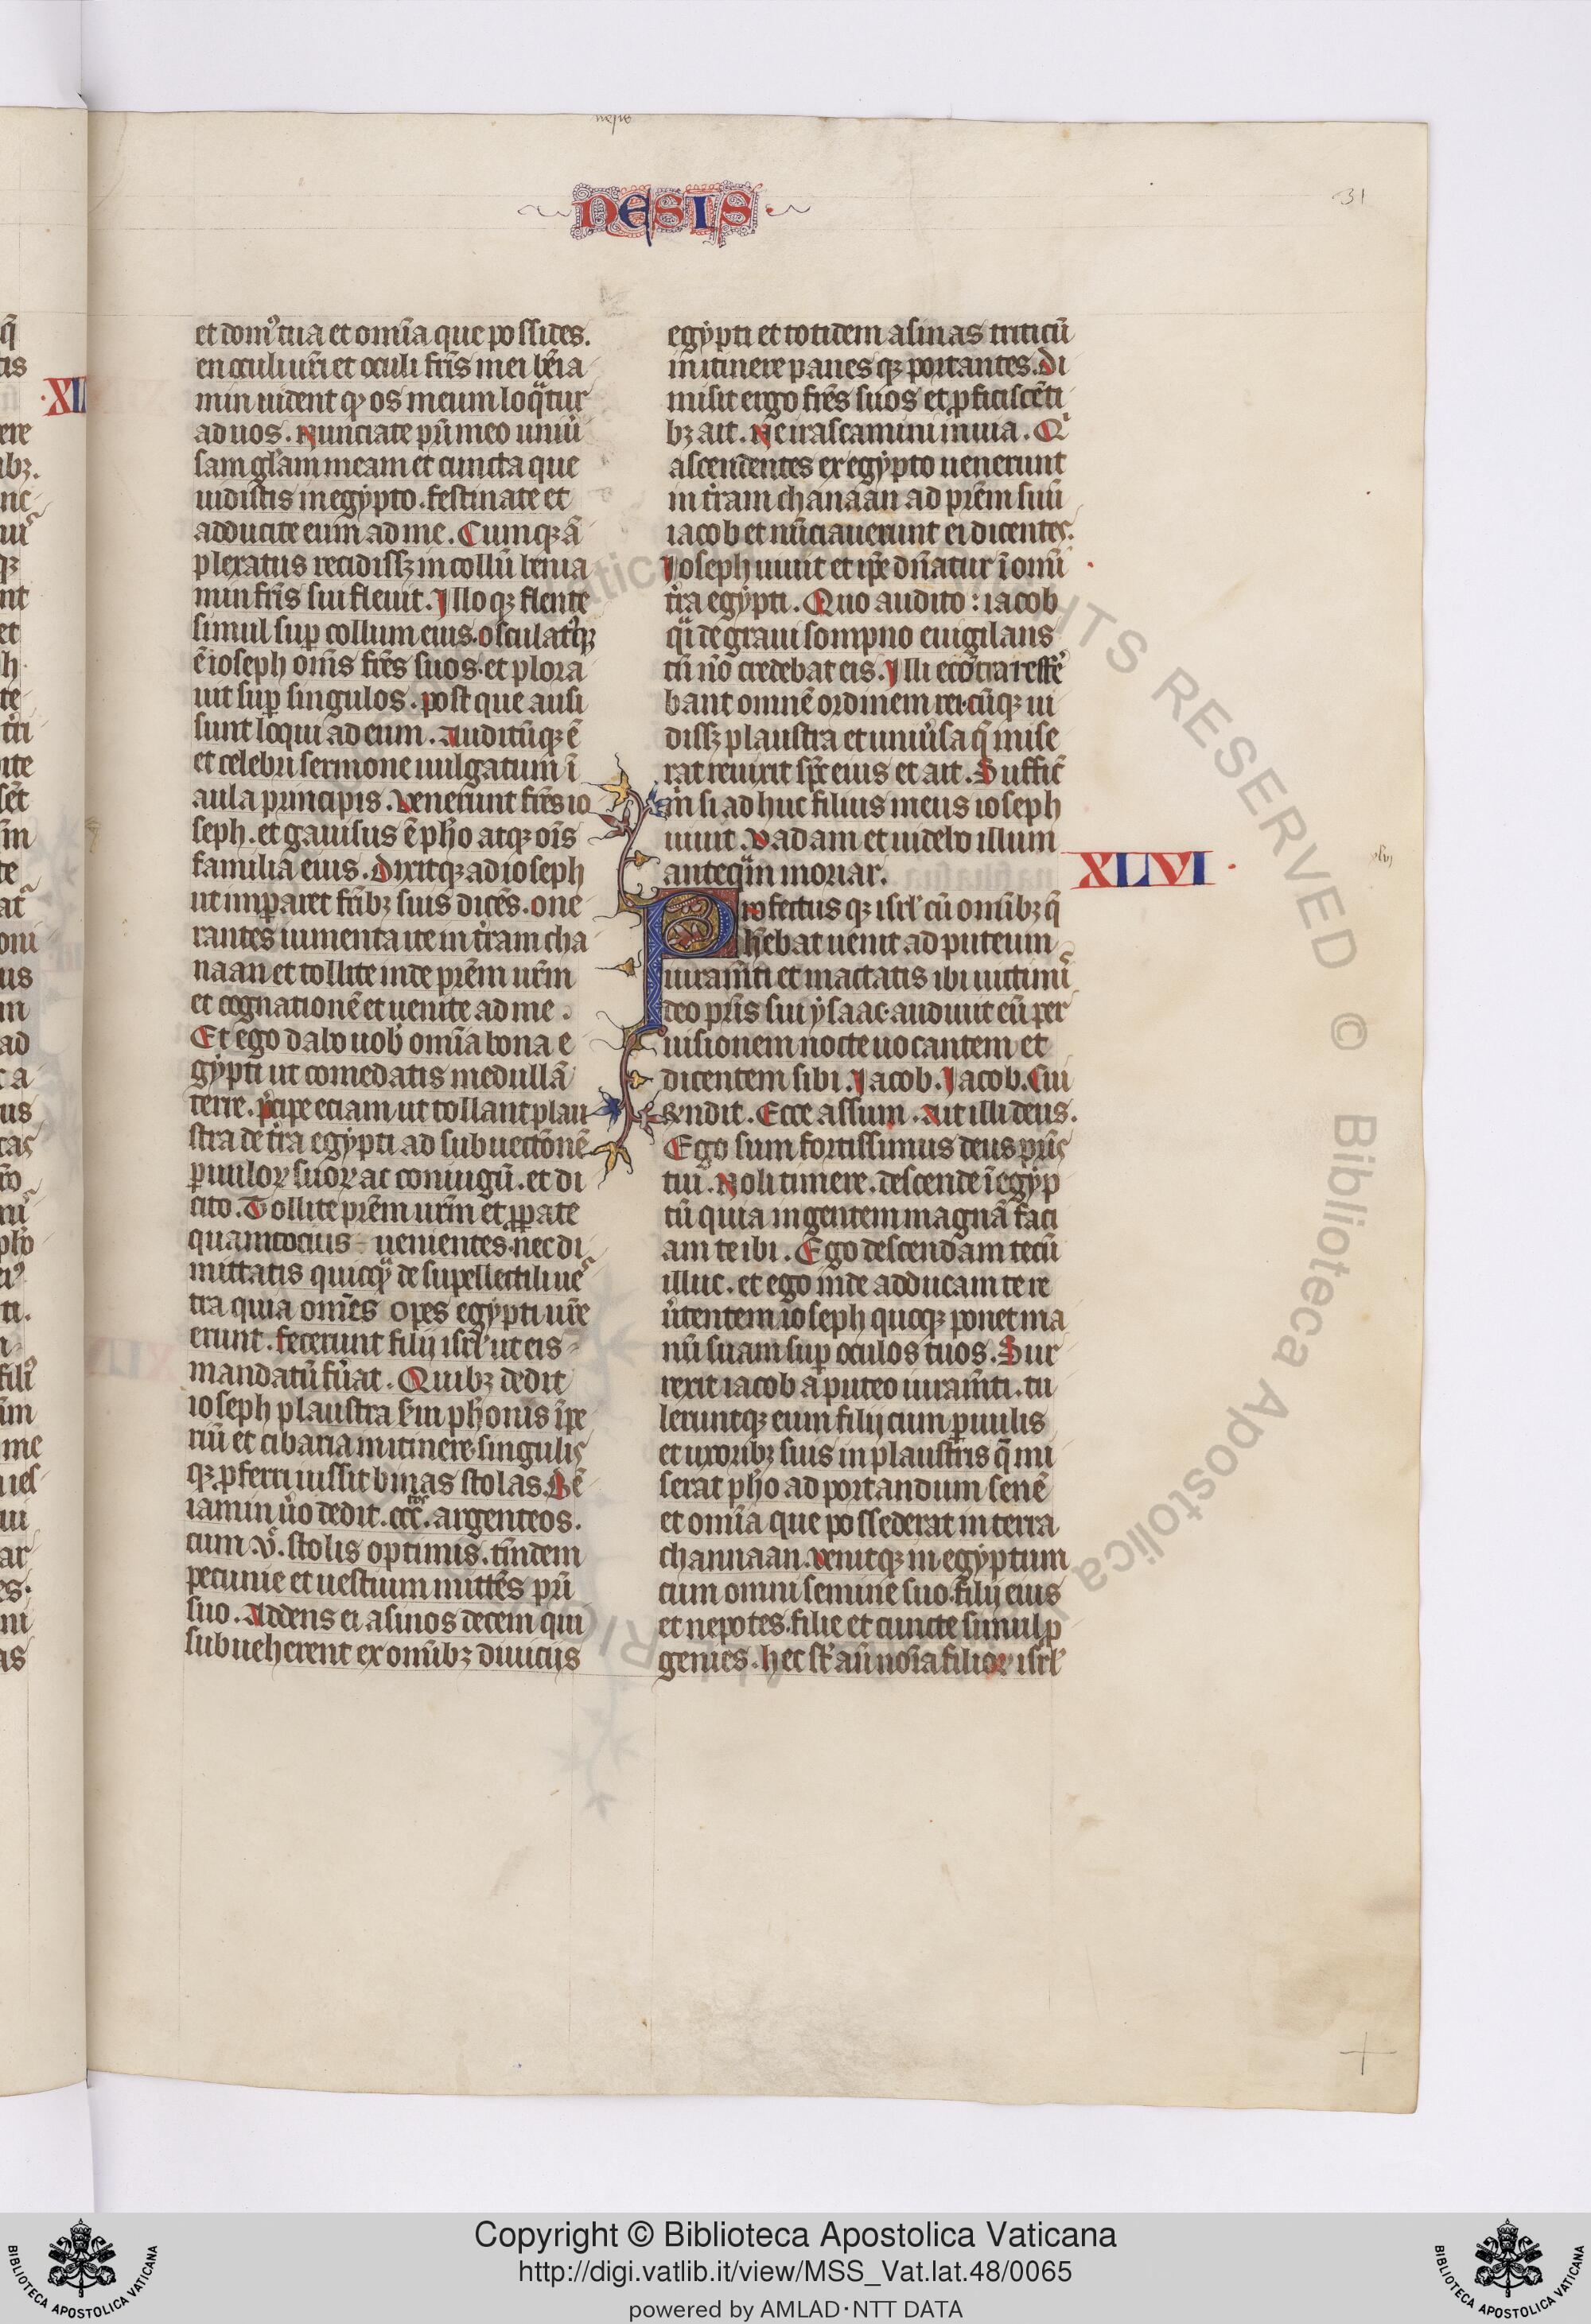 nesis
NESIS
31
et domꝰ tua et om̄ia que possides.
en oculi ur̄i et oculi fr̄is mei bēia
min uident qͥ os meum loqᷓtur
ad uos. Nunciate pr̄i meo uniũ
sam gl̄am meam et cuncta que
uidistis in egypto. festinate et
adducite eum ad me. Cumqꝫ ā
plexatus recidissꝫ in collū benia
min fr̄is sui fleuit. Illo qꝫ flente
simul suꝑ collum eius. osculatꝰqꝫ
ē ioseph om̄s fr̄es suos. et plora
uit suꝑ singulos. post que ausi
sunt loqui ad eum. Auditūqꝫ ē
et celebri sermone uulgatum ī
aula principis. Venerunt fr̄es io
seph. et gauisus ē pho atqꝫ oīs
familia eius. Dixitqꝫ ad ioseph
ut imꝑaret fr̄ibꝫ suis dicēs. one
rantes iumenta ite in tr̄am cha
naan et tollite inde pr̄em ur̄m
et cognationē et uenite ad me.
Et ego dabo uob̄ om̄ia bona e
gypti ut comedatis medullā
terre. p̄cipe eciam ut tollant plau
stra de tr̄a egypti ad subuectōnē
ꝑuulorꝝ suorꝝ ac coniugū. et di
cito. Tollite pr̄em ur̄m et ꝓꝑate
quantocius uenientes. nec di
mittatis quicqᷓ de supellectili ues
tra quia om̄es opes egypti ur̄e
erunt. fecerunt filij isrl̄ ut eis
mandatū fu͛at. Quibꝫ dedit
ioseph plaustra s͛m phonis īpe
riū et cibaria in itinere. singulis
qꝫ ꝓferri iussit binas stolas. Bē
iamin u͛o dedit. ccc. tos argenteos.
cum .v. stolis optimis. tm̄dem
pecunie et uestium mittēs pr̄i
suo. Addens ei asinos decem qui
subueherent ex om̄ibꝫ diuicijs
egypti et totidem asinas triticū
in itinere panes qꝫ portantes. Di
misit ergo fr̄es suos et ꝓficiscēti
bꝫ ait. Ne irascamini in uia. Qͥ
ascendentes ex egypto uenerunt
in tr̄am chanaan ad pr̄em suū
iacob et nūciauerunt ei dicentes.
Ioseph uiuit et ip̄e dn̄atur ī omī
tr̄a egypti. Quo audito : iacob
qᷓi de graui sompno euigilans
tn̄ nō credebat eis. Illi ecōtra reffe͛
bant omnē ordinem rei. cūqꝫ ui
dissꝫ plaustra et uniu͛sa q̄ mise
rat reuixit sp̄c eius et ait. Sufficit
m̄ si adhuc filius meus ioseph
uiuit. Vadam et uidebo illum
anteqᷓm moriar.
XLVI
xlvi
Profectus qꝫ isrl̄ cū om̄ibꝫ q̄
h̄ebat uenit ad puteum
iuram̄ti et mactatis ibi uictimis
deo pr̄is sui ysaac. audiuit eū per
uisionem nocte uocantem et
dicentem sibi. Iacob. Iacob. Cui
rn̄dit. Ecce assum. Ait illi deus.
Ego sum fortissimus deus pr̄is
tui. Noli timere. descende ī egyp
tū quia in gentem magnā faci
am te ibi. Ego descendam tecū
illuc. et ego inde adducam te re
u͛tentem ioseph quoqꝫ ponet ma
nū suam suꝑ oculos tuos. Sur
rexit iacob a puteo iuram̄ti. tu
leruntqꝫ eum filij cum ꝑuulis
et uxoribꝫ suis in plaustris q̄ mi
serat pho ad portandum senē
et om̄ia que possederat in terra
channaan. Venitqꝫ in egyptum
cum omni semine suo. filij eius
et nepotes. filie et cuncte simul ꝓ
genies. hec st̄ aū noīa filiorꝝ isrl̄
© Biblioteca Apostolica Vaticana ALL RIGHTS RESERVED
Copyright © Biblioteca Apostolica Vaticana
http://digi.vatlib.it/view/MSS_Vat.lat.48/0065
powered by AMLAD·NTT DATA
BIBLIOTECA APOSTOLICA VATICANA
BIBLIOTECA APOSTOLICA VATICANA